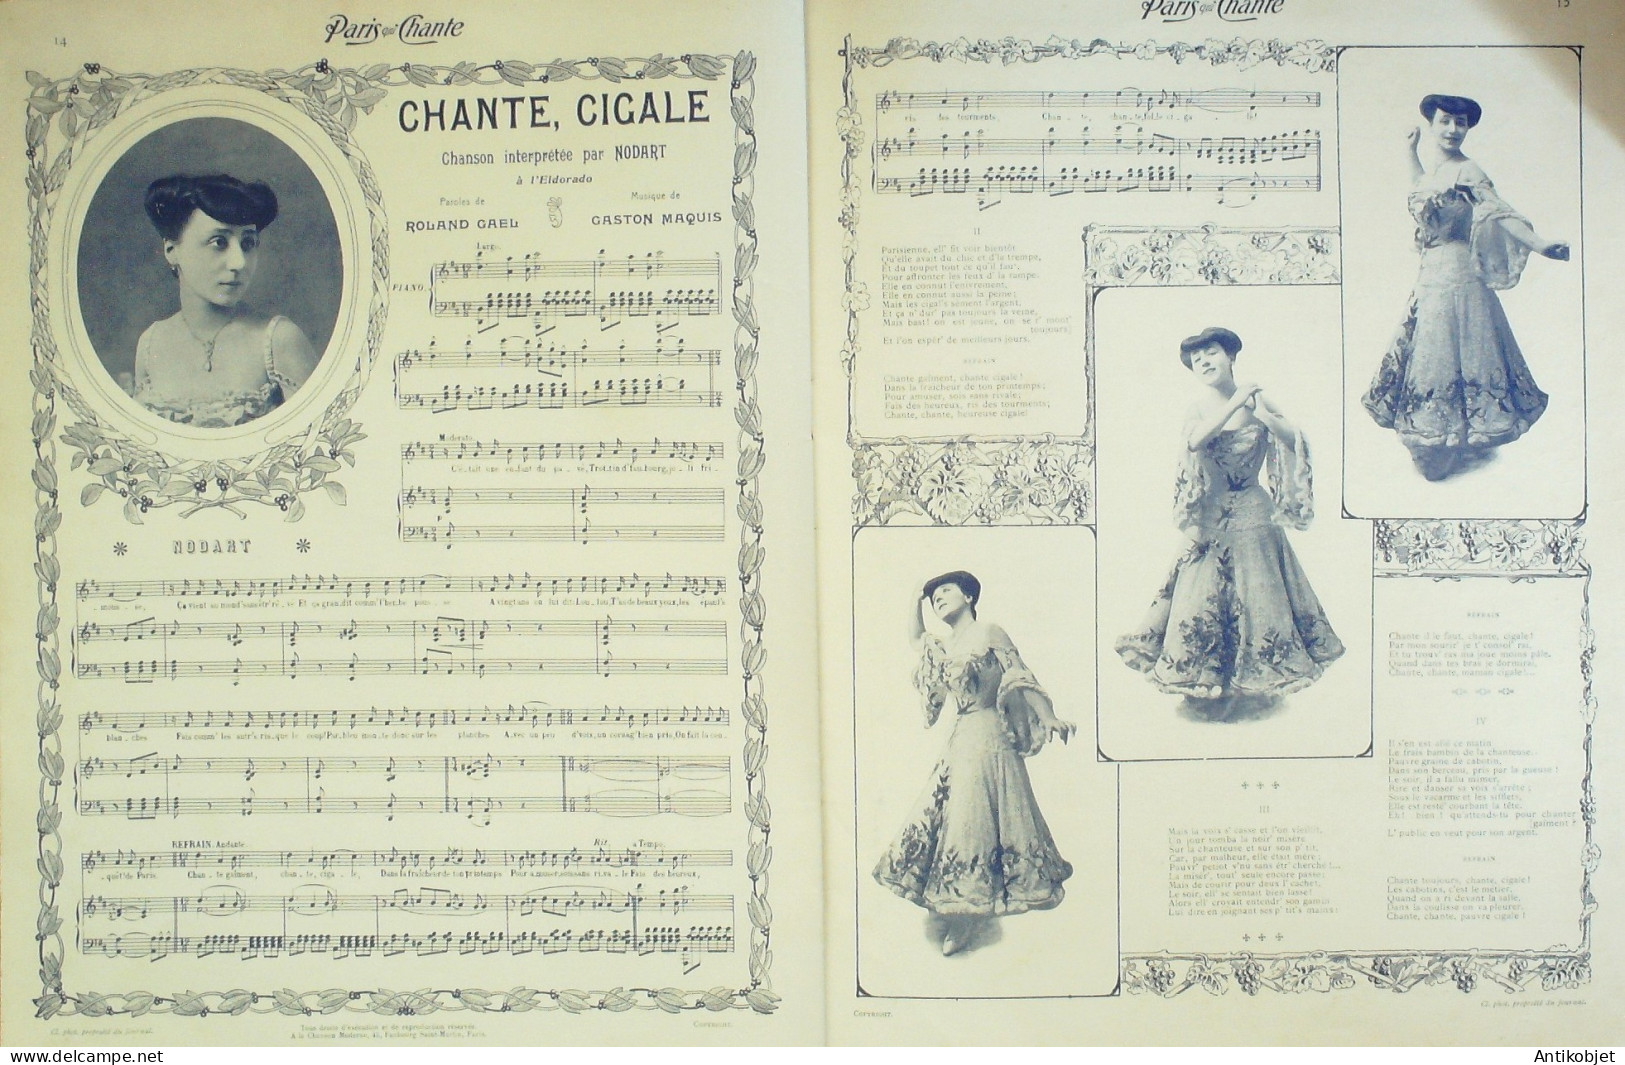 14
Paris qui Chante
CHANTE, CIGALE
Chanson interprétée par NODART
à l'Eldorado
Paroles de
ROLAND GAEL
Musique de
GASTON MAQUIS
Largo.
PIANO.
Moderato.
C'était une enfant du
Trottin d'faubourg, joli fri-
NODART
mous - se, Ça vient au mond' sans êtr'
Et ça grandit comm' l'herbe pous - se A vingt ans on lui dit: Lou - lou, T'as de beaux yeux, les épaul's
blan - ches Fais comm' les autr's
le coup! Par - bleu mon - te donc sur les planches A - vec un peu d'voix, un corsag' bien pris, On fait la con -
quêt' de Paris.
REFRAIN. Andante.
Rit.
a Tempo.
Chan - te gaîment, chan - te, ciga - le, Dans la fraîcheur de ton printemps Pour amuser, sois sans riva - le Fais des heureux,
Cl. phot. propriété du journal.
Tous droits d'exécution et de reproduction réservés
A la Chanson Moderne, 45, Faubourg Saint-Martin, Paris.
COPYRIGHT.
Paris qui Chante
15
ris des tourments, Chan - te, chan - te,
ci - ga - le!
II
Parisienne, ell' fit voir bientôt
Qu'elle avait du chic et d'le trempe,
Et du toupet tout ce qu'il faut,
Pour affronter les feux d' la rampe.
Elle en connut l'enivrement,
Elle en connut aussi la peine;
Mais les cigal's sèment l'argent,
Et ça n' dur' pas toujours la veine,
Mais bast! on est jeune, on se r' mont'
[toujours]
Et l'on espèr' de meilleurs jours.
REFRAIN
Chante gaîment, chante cigale!
Dans la fraîcheur de ton printemps;
Pour amuser, sois sans rivale;
Fais des heureux, ris des tourments;
Chante, chante, heureuse cigale!
III
Mais la voix s' casse et l'on vieillit,
Un jour tomba la noir' misère
Sur la chanteuse et sur son p' tit,
Car, par malheur, elle était mère;
Pauvr' petiot v'nu sans êtr' cherché!...
La misèr', tout' seule encore passe;
Mais de courir pour deux l' cachet,
Le soir, ell' se sentait bien lasse!
Alors ell' croyait entendr' son gamin
Lui dire en joignant ses p' tit's mains:
REFRAIN
Chante il le faut, chante, cigale!
Par mon sourir' je t' consol' rai,
Et tu trouv' ras ma joue moins pâle,
Quand dans tes bras je dormirai,
Chante, chante, maman cigale!...
IV
Il s'en est allé ce matin
Le frais bambin de la chanteuse.
Pauvre graine de cabotin,
Dans son berceau, pris par la gueuse!
Le soir, il a fallu mimer,
Rire et danser sa voix s'arrête;
Sous le vacarme et les sifflets,
Elle est resté' courbant la tête.
Eh! bien! qu'attends-tu pour chanter
[gaîment?
L' public en veut pour son argent.
REFRAIN
Chante toujours, chante, cigale!
Les cabotins, c'est le métier,
Quand on a ri devant la salle,
Dans la coulisse on va pleurer,
Chante, chante, pauvre cigale!
COPYRIGHT.
Cl. phot. propriété du journal.
www.philexshop.com
Antikobjet